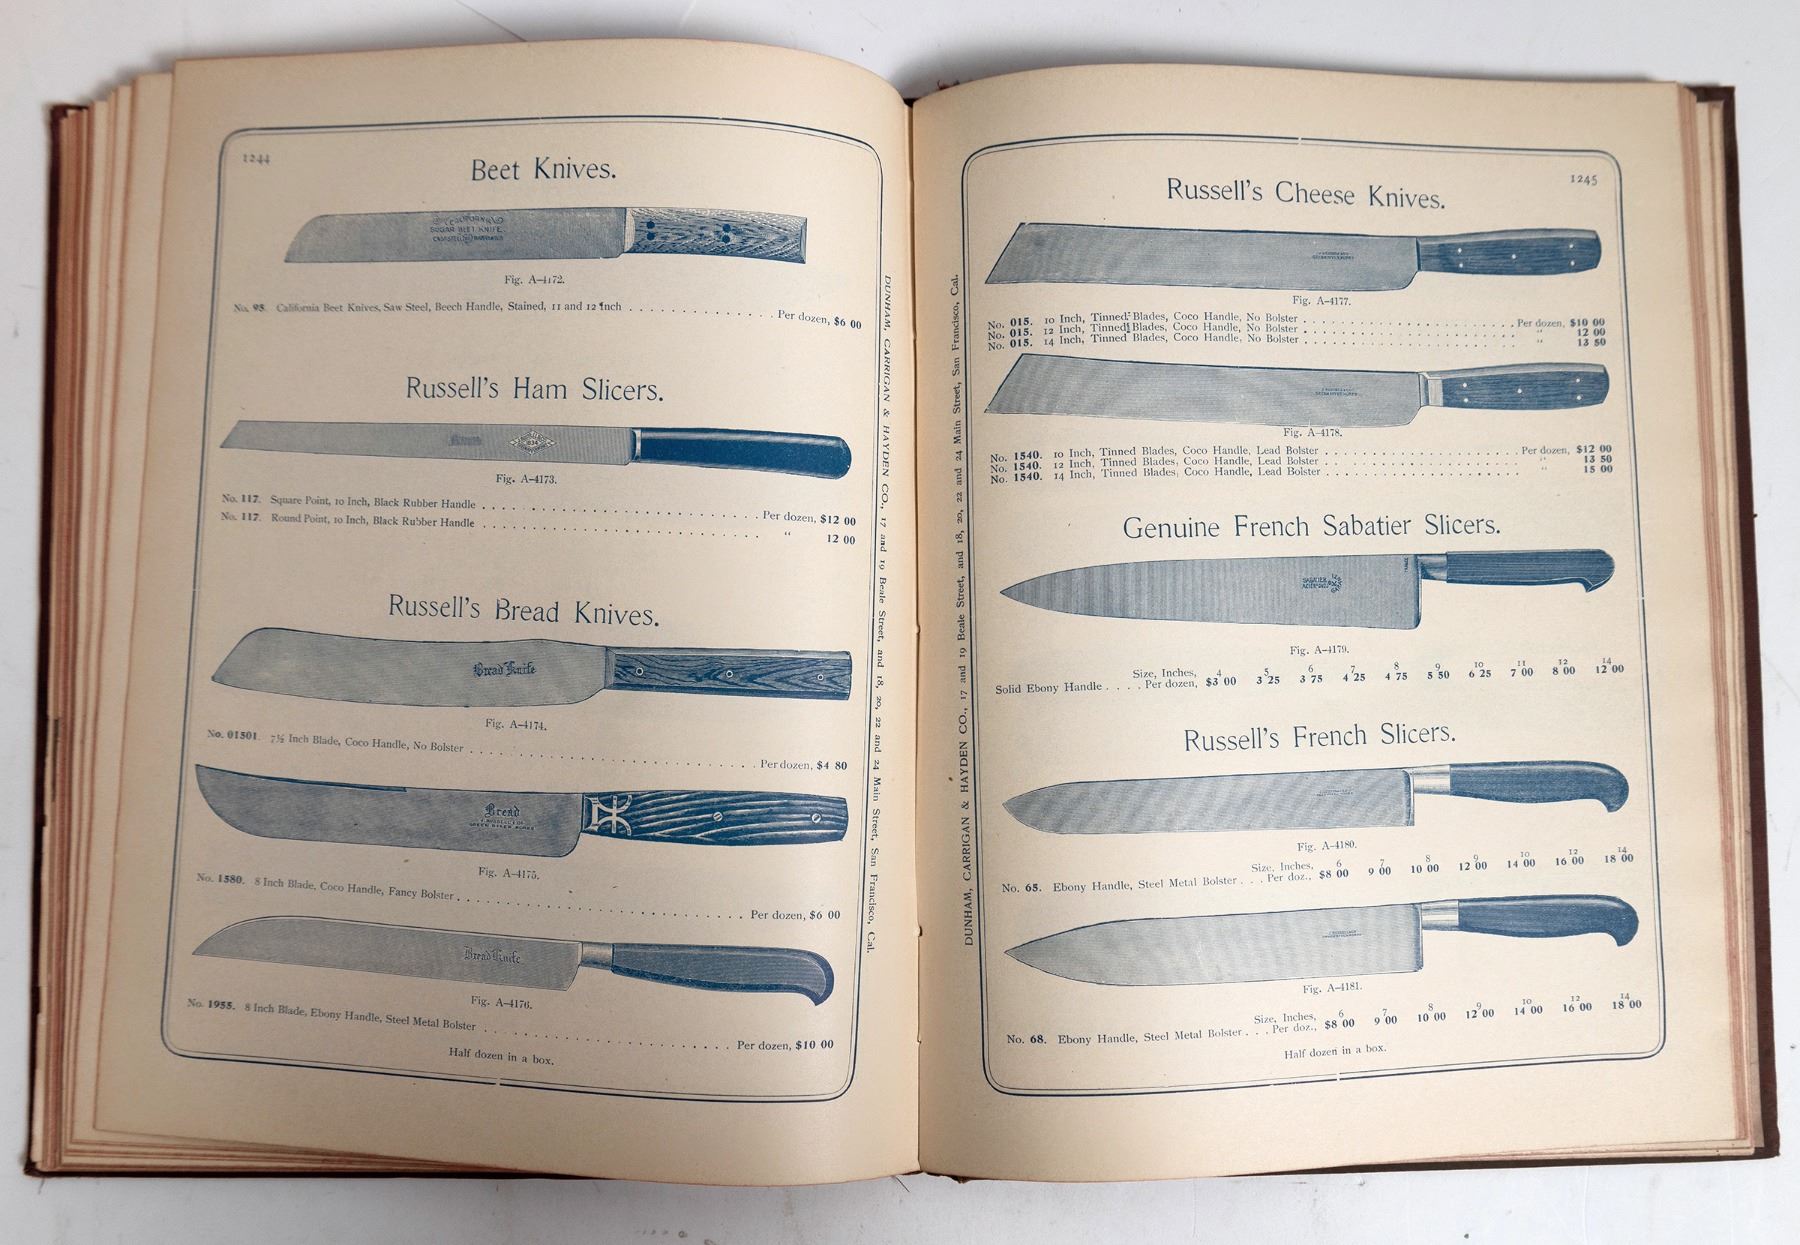 1244
Beet Knives.
CALIFORNIA
SUGAR BEET KNIFE
Fig. A-4172.
No. 95. California Beet Knives, Saw Steel, Beech Handle, Stained, 11 and 12 Inch . . . . . . . . . . . . . . Per dozen, $6 00
Russell's Ham Slicers.
Fig. A-4173.
No. 117. Square Point, 10 Inch, Black Rubber Handle . . . . . . . . . . . . . . Per dozen, $12 00
No. 117. Round Point, 10 Inch, Black Rubber Handle . . . . . . . . . . . . . . " 12 00
Russell's Bread Knives.
Bread Knife
Fig. A-4174.
No. 01501. 7½ Inch Blade, Coco Handle, No Bolster . . . . . . . . . . . . . . Per dozen, $4 80
Bread
J. RUSSELL & CO.
GREEN RIVER WORKS
Fig. A-4175.
No. 1580. 8 Inch Blade, Coco Handle, Fancy Bolster . . . . . . . . . . . . . . Per dozen, $6 00
Bread Knife
Fig. A-4176.
No. 1955. 8 Inch Blade, Ebony Handle, Steel Metal Bolster . . . . . . . . . . . . . . Per dozen, $10 00
Half dozen in a box.
DUNHAM, CARRIGAN & HAYDEN CO., 17 and 19 Beale Street, and 18, 20, 22 and 24 Main Street, San Francisco, Cal.
DUNHAM, CARRIGAN & HAYDEN CO., 17 and 19 Beale Street, and 18, 20, 22 and 24 Main Street, San Francisco, Cal.
1245
Russell's Cheese Knives.
Fig. A-4177.
No. 015. 10 Inch, Tinned Blades, Coco Handle, No Bolster . . . . . . . . . . . . . . Per dozen, $10 00
No. 015. 12 Inch, Tinned Blades, Coco Handle, No Bolster . . . . . . . . . . . . . . " 12 00
No. 015. 14 Inch, Tinned Blades, Coco Handle, No Bolster . . . . . . . . . . . . . . " 13 50
Fig. A-4178.
No. 1540. 10 Inch, Tinned Blades, Coco Handle, Lead Bolster . . . . . . . . . . . . . . Per dozen, $12 00
No. 1540. 12 Inch, Tinned Blades, Coco Handle, Lead Bolster . . . . . . . . . . . . . . " 13 50
No. 1540. 14 Inch, Tinned Blades, Coco Handle, Lead Bolster . . . . . . . . . . . . . . " 15 00
Genuine French Sabatier Slicers.
SABATIER
Fig. A-4179.
Size, Inches, 4 5 6 7 8 9 10 11 12 14
Solid Ebony Handle . . . . Per dozen, $3 00 3 25 3 75 4 25 4 75 5 50 6 25 7 00 8 00 12 00
Russell's French Slicers.
Fig. A-4180.
Size, Inches, 6 7 8 9 10 12 14
No. 65. Ebony Handle, Steel Metal Bolster . . . Per doz., $8 00 9 00 10 00 12 00 14 00 16 00 18 00
Fig. A-4181.
Size, Inches, 6 7 8 9 10 12 14
No. 68. Ebony Handle, Steel Metal Bolster . . . Per doz., $8 00 9 00 10 00 12 00 14 00 16 00 18 00
Half dozen in a box.